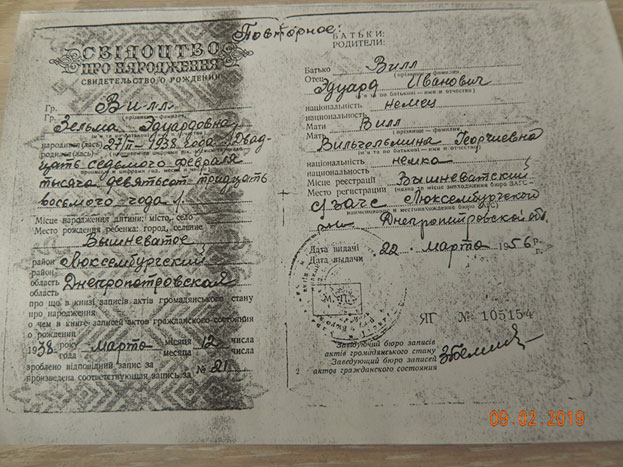 Повторное:
СВІДОЦТВО
ПРО НАРОДЖЕННЯ
СВИДЕТЕЛЬСТВО О РОЖДЕНИИ
Гр. Вилл
Гр. (прізвище — фамилия)
Зельма Эдуардовна
народився(лась) 27/II-1938 года Двад
родился(лась)
цать седьмого февраля
тысяча девятьсот тридцать
восьмого года
Місце народження дитини: місто, село
Место рождения ребенка: город, селение
Вышневатое
район Люксембургский
район
область Днепропетровской
область
про що в книзі записів актів громадянського стану
про народження
о чем в книге записей актов гражданского состояния
о рождении
1938 року марта місяця 12 числа
года месяца числа
зроблено відповідний запис за № 21
произведена соответствующая запись за
БАТЬКИ:
РОДИТЕЛИ:
Батько Вилл
Отец (прізвище — фамилия)
Эдуард Иванович
(ім'я та по батькові — имя и отчество)
національність немец
национальность
Мати Вилл
Мать (прізвище — фамилия)
Вильгельмина Георгиевна
(ім'я та по батькові — имя и отчество)
національність немка
национальность
Місце реєстрації Вышневатский
Место регистрации (назва та місце знаходження бюро ЗАГС —
с/загс Люксембургской
наименование и местонахождение бюро ЗАГС)
р-на Днепропетровской об.
Дата видачі 22 марта 1956 р.
Дата выдачи г.
М. П.
ЯГ № 105154
Завідуючий бюро записів
актів громадянського стану
Заведующий бюро записей
2 актов гражданского состояния
09.02.2019